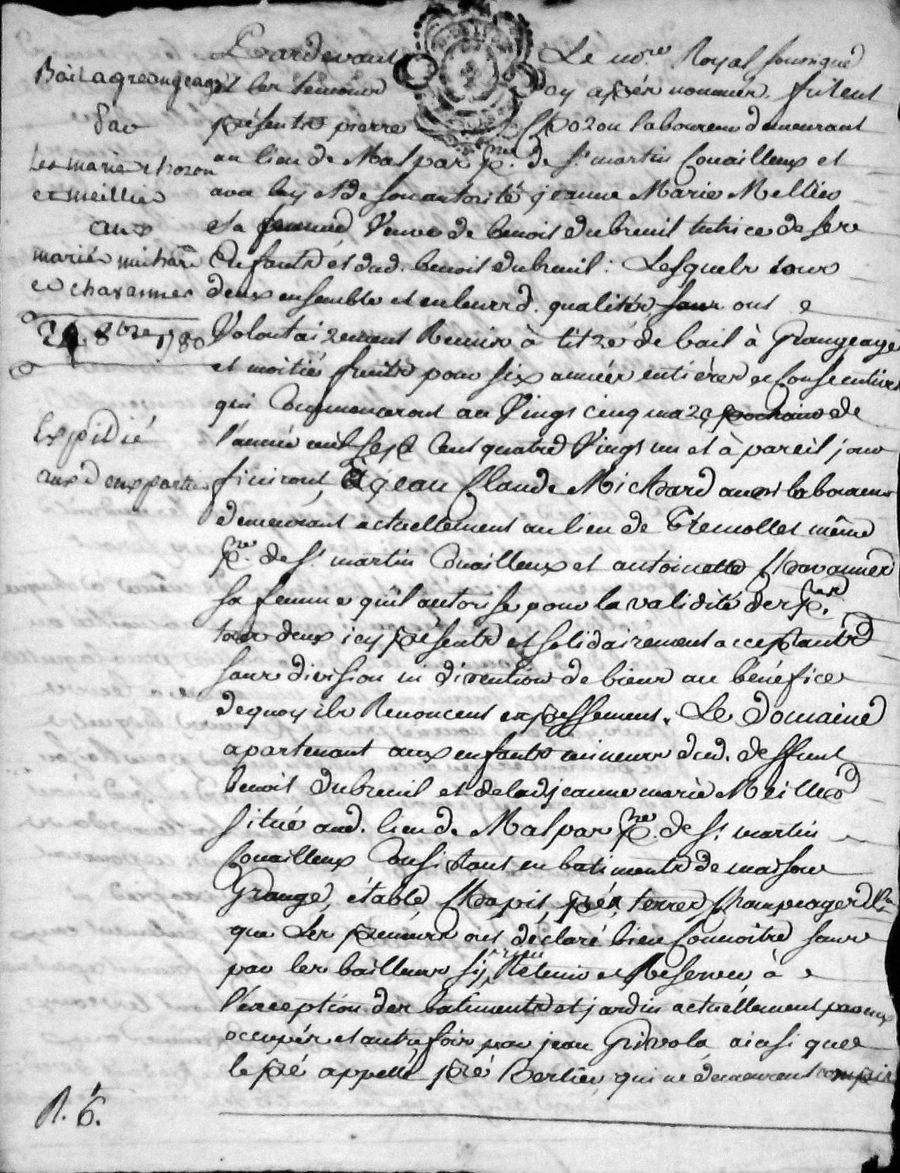 Bail a grangeage
par
les mariés chozon
et meillier
aux
mariés michard
et chavannes
21 8bre 1780
Expédié
aux deux parties
Pardevant Le nore Royal soussigné
et les temoins cy après nommés. furent
présents pierre Chozon laboureur demeurant
au lieu de Malpar pse. de st martin Couailleux et
avec luy et de son autorité jeanne Marie Mellier
sa femme Veuve de benoit dubreuil tutrice de ses
Enfants et dud. benoit dubreuil : Lesquels tous
deux ensemble et en leurd. qualités ont
Volontairement Remis à titre de bail à Grangeage
et moitié fruits pour six années entières et Consecutives
qui Commenceront au Vingt cinq mars prochain de
l'année mil sept Cent quatre Vingt un et à pareil jour
finiront, à jean Claude Michard aussi laboureur
demeurant actuellement au lieu de Tremolles même
pse. de st martin Couailleux et antoinette Chavannes
sa femme qu'il autorise pour la validité des ptes.
tous deux icy présents et solidairement acceptants
sans division ni discution de biens au bénéfice
de quoy ils Renoncent expressement. Le Domaine
apartenant aux enfants mineurs dud. deffunt
benoit dubreuil et de lad. jeanne marie Meillier
situé aud. lieu de Malpar pse. de st martin
Couailleux Consistant en batiments de maison
Grange, étable Chapit, prés, terres, Champeages
que Les preneurs ont déclaré bien Connoitre sans
par les bailleurs sy rien Retenir et Reserver à
l'exception des batiments et jardin actuellement par eux
occupés et autrefois par jean Grivola ainsi que
le pré appellé pré Berlier, qui ne demeurent compris
R. 6.